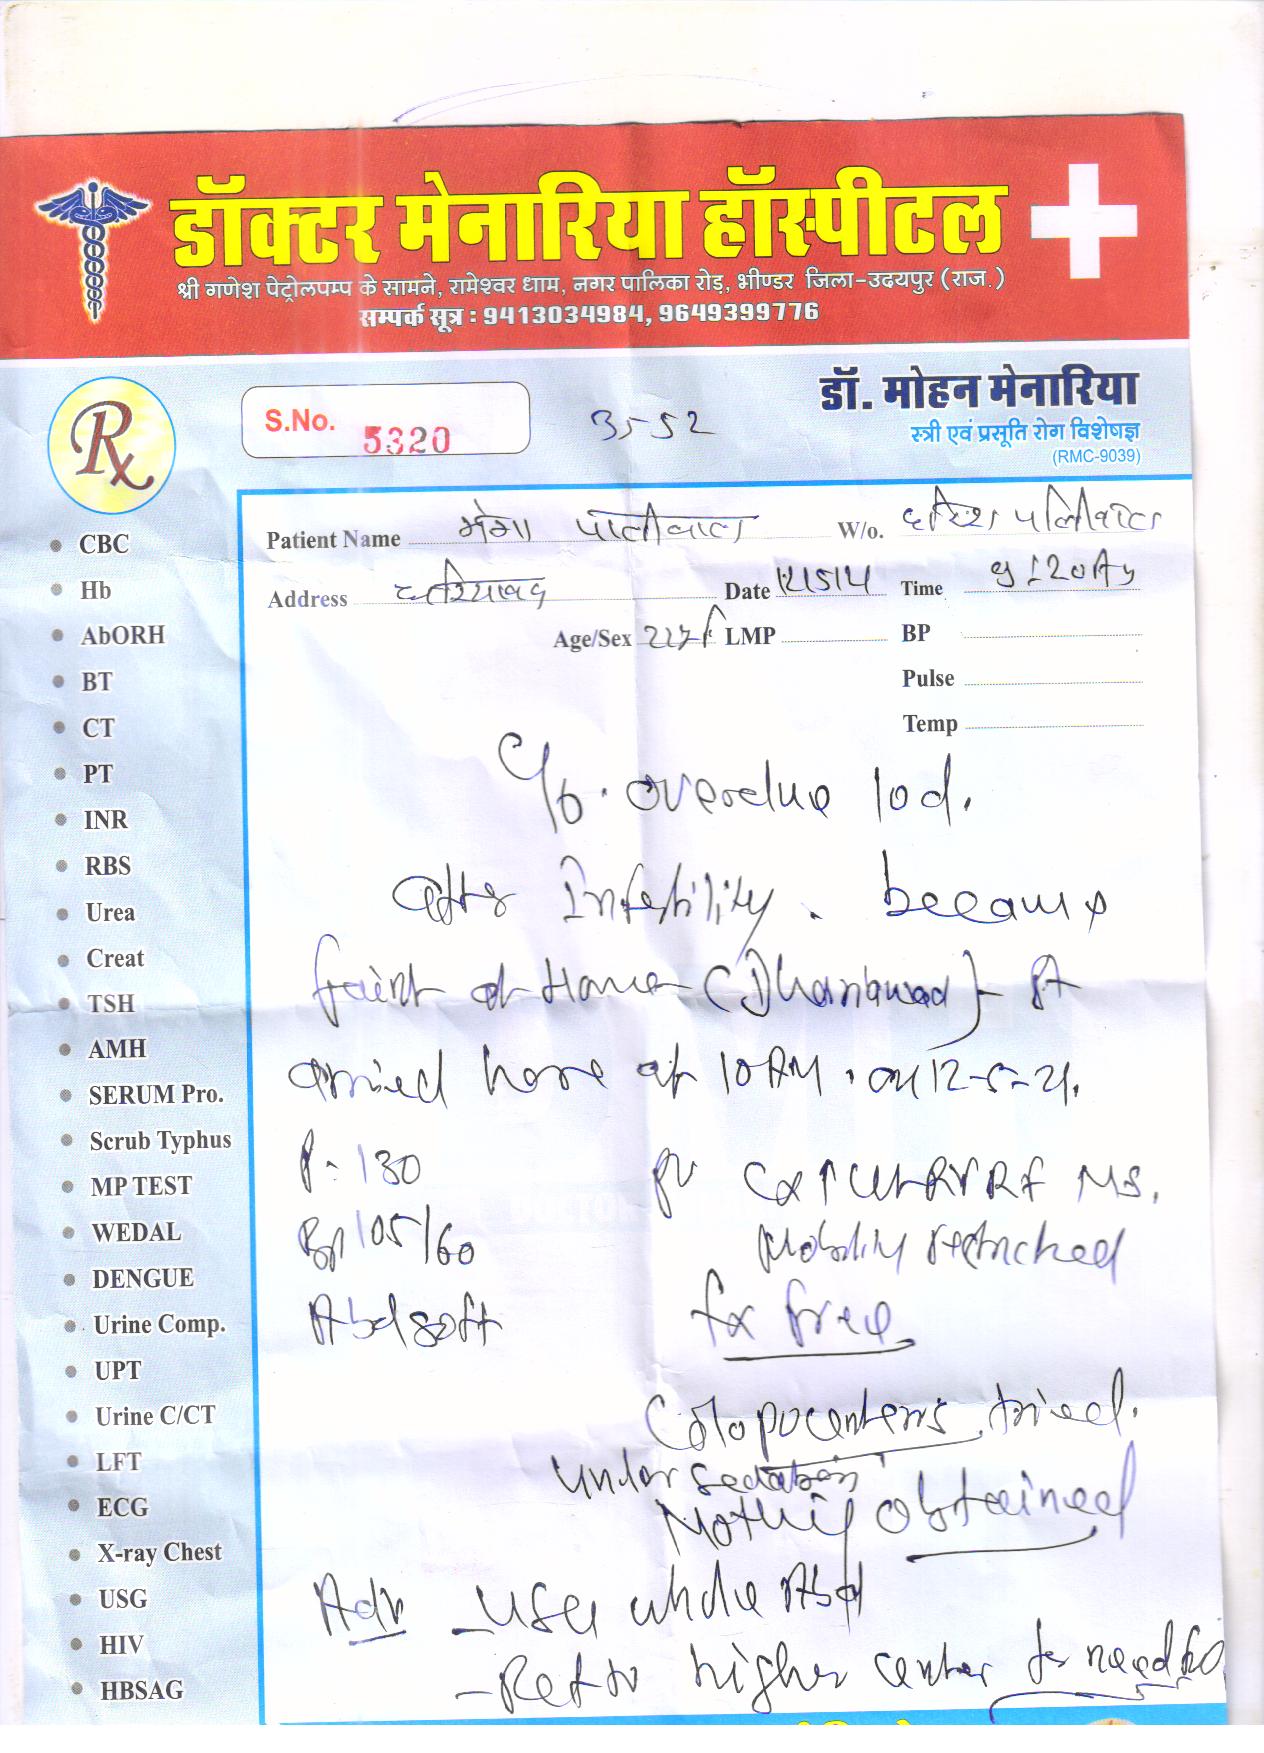 डॉक्टर मेनारिया हॉस्पीटल
श्री गणेश पेट्रोलपम्प के सामने, रामेश्वर धाम, नगर पालिका रोड़, भीण्डर जिला-उदयपुर (राज.)
सम्पर्क सूत्र : 9413034984, 9649399776
डॉ. मोहन मेनारिया
स्त्री एवं प्रसूति रोग विशेषज्ञ
(RMC-9039)
Rx
S.No. 5320
Patient Name W/o.
Address Date Time
Age/Sex LMP BP
Pulse
Temp
CBC
Hb
AbORH
BT
CT
PT
INR
RBS
Urea
Creat
TSH
AMH
SERUM Pro.
Scrub Typhus
MP TEST
WEDAL
DENGUE
Urine Comp.
UPT
Urine C/CT
LFT
ECG
X-ray Chest
USG
HIV
HBSAG
C/o. overdue 10d.
after Infertility. became
faint at Home (Dhariawad)
arrived here at 10 AM. on 12-5-21.
P - 130
BP 105/60
Abd soft
PV
Mobility restricted
fx free
Colopocentesis tried.
under sedation
Nothing obtained
Adv - USG whole Abd
- Ref to higher center for need